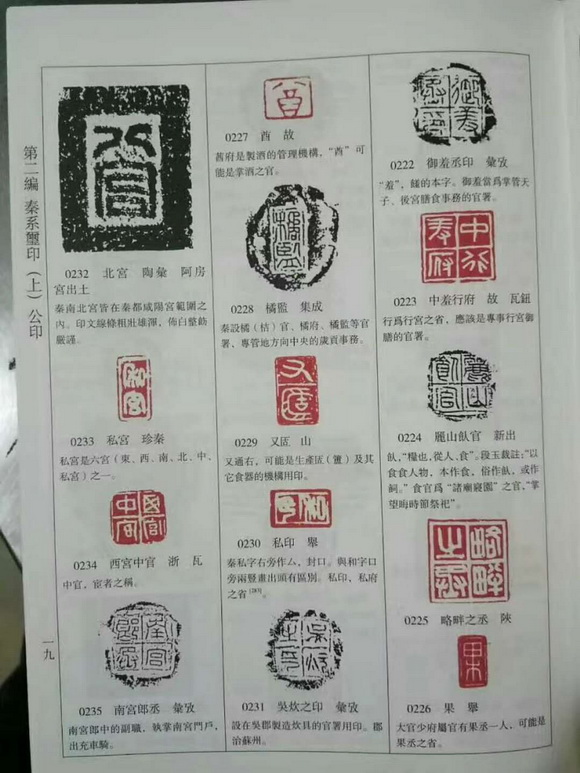 0222 御羞丞印 彙攷
“羞”，饈的本字。御羞當爲掌管天
子、後宮膳食事務的官署。
0223 中羞行府 故 瓦鈕
行爲行宮之省，應該是專事行宮御
膳的官署。
0224 麗山飤官 新出
飤，“糧也，從人、食”。段玉裁註：“以
食食人物，本作食，俗作飤，或作
飼。”食官爲“諸廟寢園”之官，“掌
望晦時節祭祀”。
0225 略畔之丞 陝
0226 果 舉
大官少府屬官有果丞一人，可能是
果丞之省。
0227 酋 故
酋府是製酒的管理機構，“酋”可
能是掌酒之官。
0228 橘監 集成
秦設橘（桔）官、橘府、橘監等官
署，專管地方向中央的歲貢事務。
0229 又匠 山
又通右，可能是生產匠（簠）及其
它食器的機構用印。
0230 私印 舉
秦私字右旁作厶，封口。與和字口
旁兩豎畫出頭有區別。私印，私府
之省[283]。
0231 吳炊之印 彙攷
設在吳郡製造炊具的官署用印。郡
治蘇州。
0232 北宮 陶彙 阿房
宮出土
秦南北宮皆在秦都咸陽宮範圍之
內。印文線條粗壯雄渾，佈白整飭
嚴謹。
0233 私宮 珍秦
私宮是六宮（東、西、南、北、中、
私宮）之一。
0234 西宮中官 浙 瓦
中官，宦者之稱。
0235 南宮郎丞 彙攷
南宮郎中的副職，執掌南宮門戶，
出充車騎。
第二編 秦系璽印（上）公印
一九